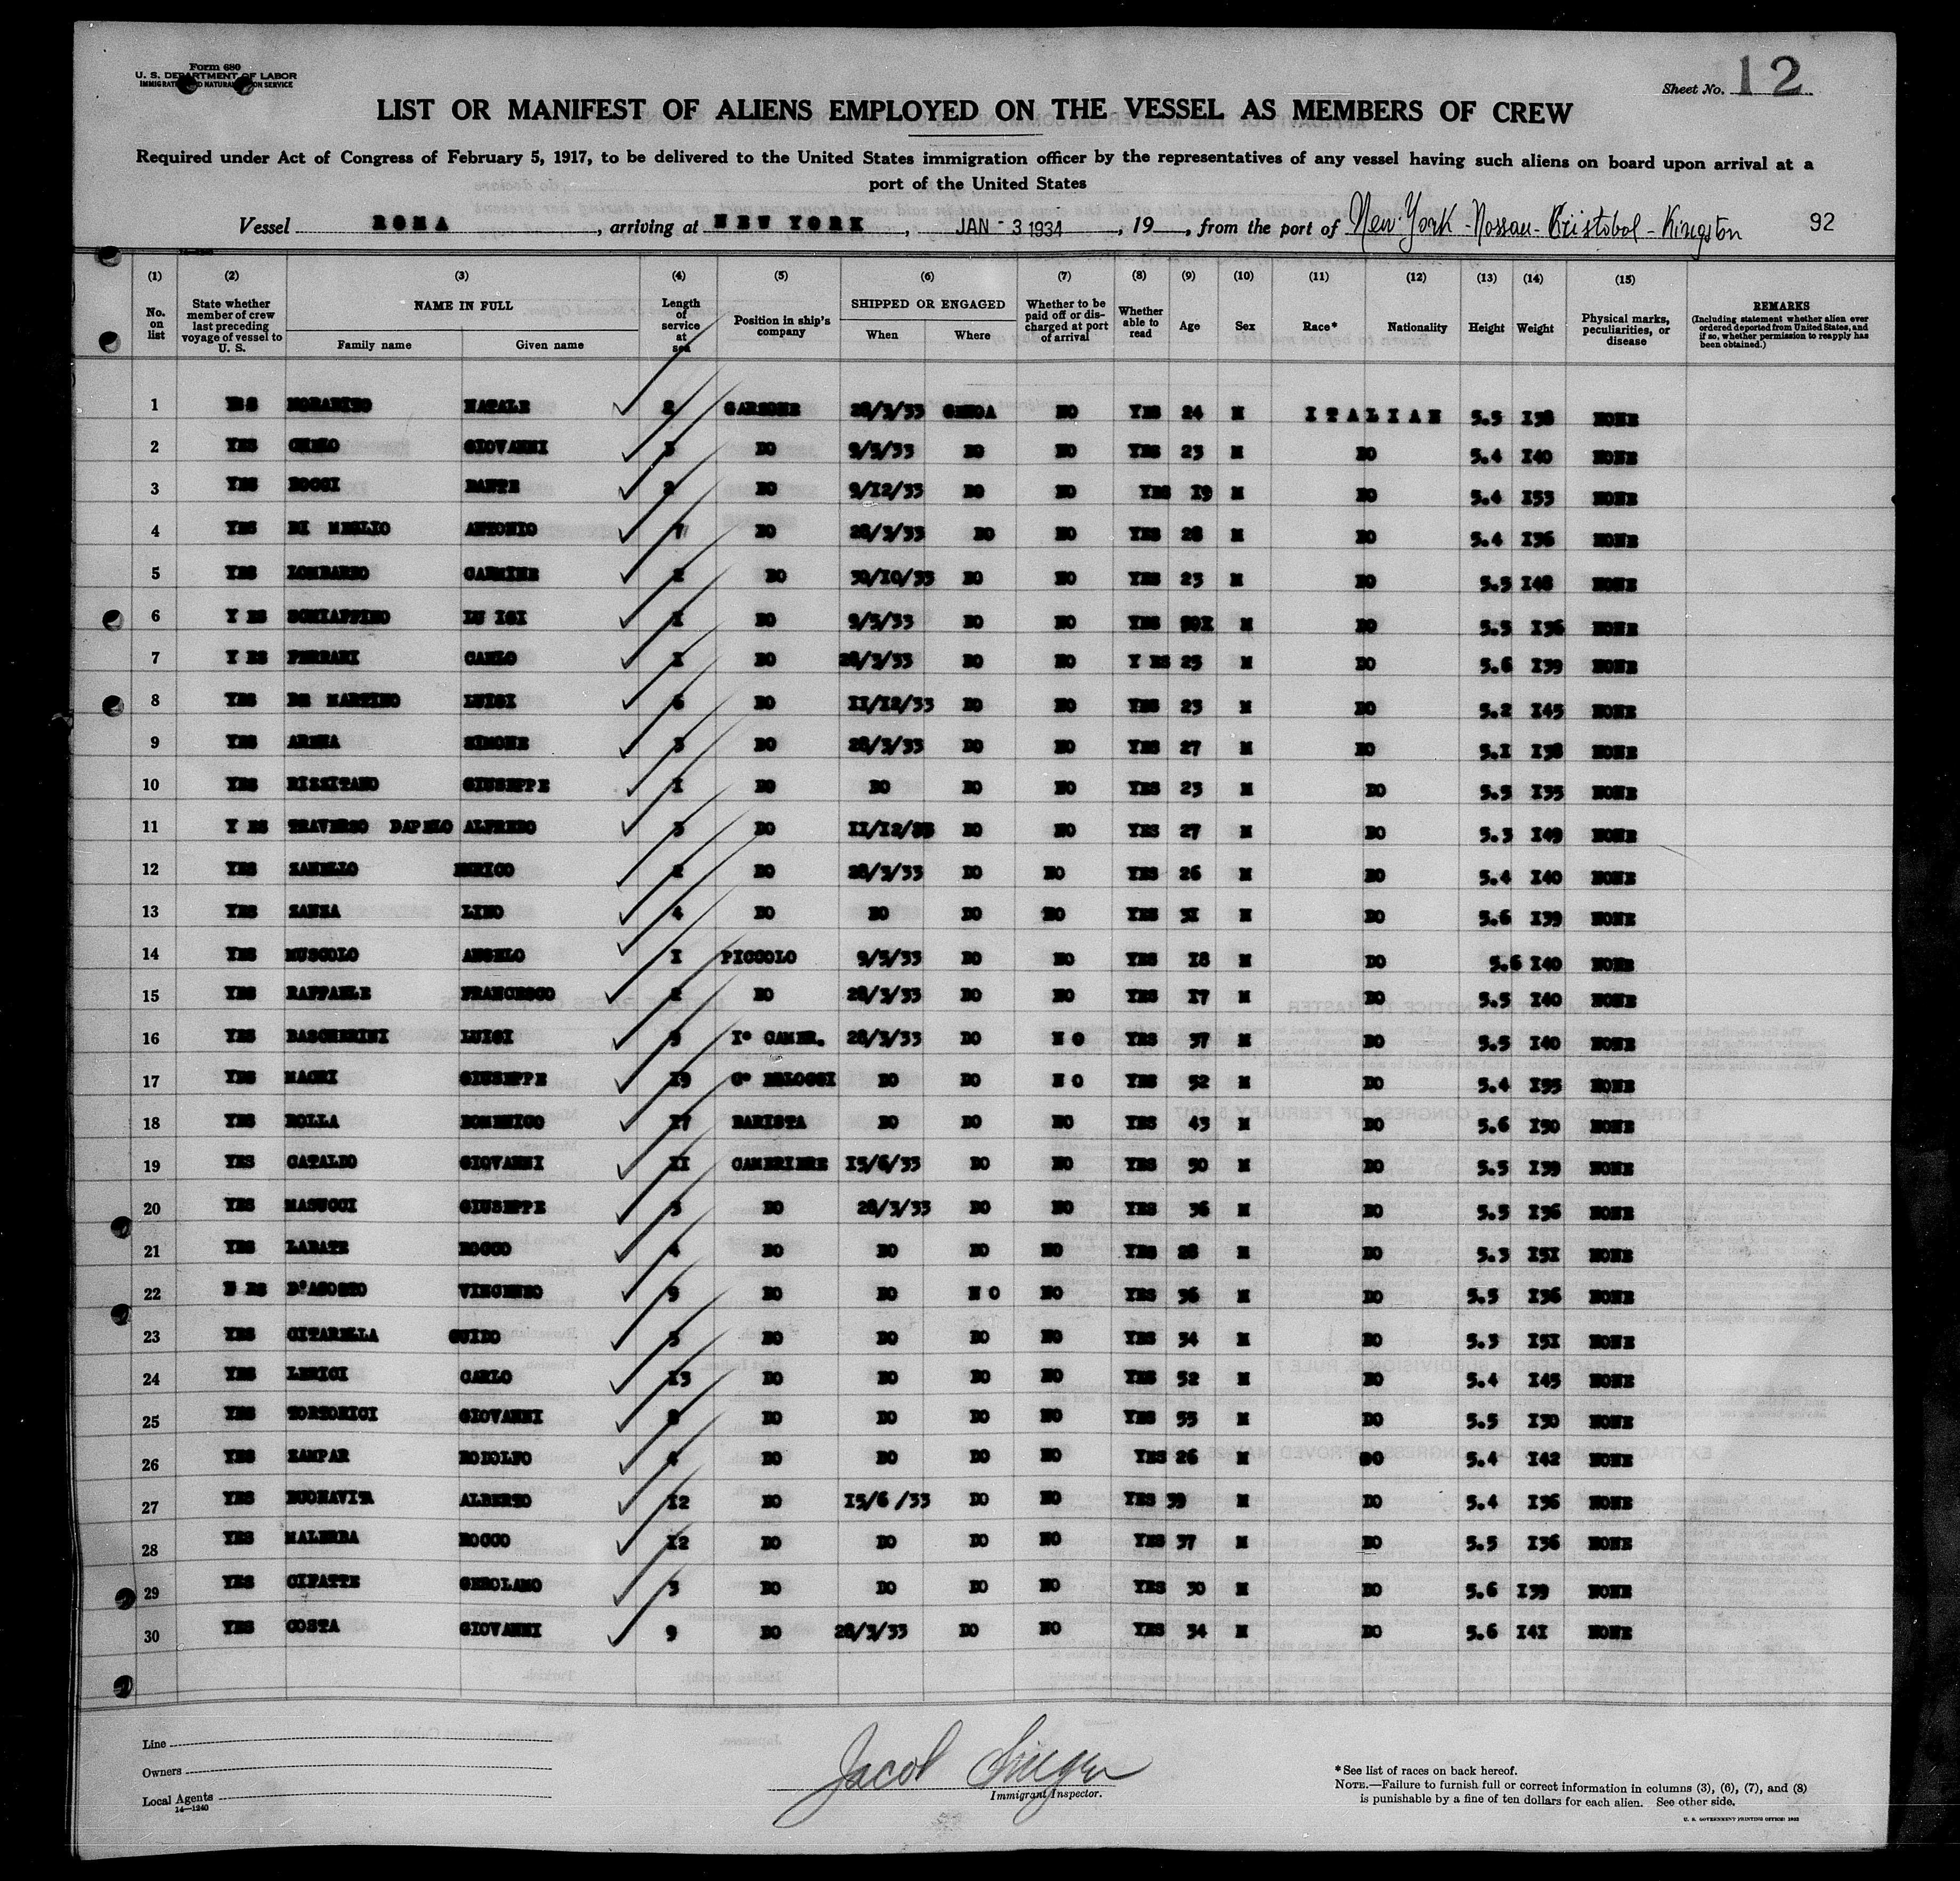 Form 680
U. S. DEPARTMENT OF LABOR
IMMIGRATION AND NATURALIZATION SERVICE
Sheet No. 12
LIST OR MANIFEST OF ALIENS EMPLOYED ON THE VESSEL AS MEMBERS OF CREW
Required under Act of Congress of February 5, 1917, to be delivered to the United States immigration officer by the representatives of any vessel having such aliens on board upon arrival at a
port of the United States
Vessel ROMA, arriving at NEW YORK, JAN - 3 1934, 19, from the port of New York - Nassau - Cristobal - Kingston 92
(1) (2) (3) (4) (5) (6) (7) (8) (9) (10) (11) (12) (13) (14) (15)
No. on list State whether member of crew last preceding voyage of vessel to U. S. NAME IN FULL Family name Given name Length of service at sea Position in ship's company SHIPPED OR ENGAGED When Where Whether to be paid off or discharged at port of arrival Whether able to read Age Sex Race* Nationality Height Weight Physical marks, peculiarities, or disease REMARKS (Including statement whether alien ever ordered deported from United States, and if so, whether permission to reapply has been obtained.)
1 YES MORABITO NATALE 2 GARZONE 28/3/33 GENOA NO YES 24 M ITALIAN 5.5 I38 NONE
2 YES GIOVANNI DO 9/5/33 DO NO YES 23 M DO 5.4 I40 NONE
3 YES DANTE 2 DO 9/I2/33 DO NO YES I9 M DO 5.4 I53 NONE
4 YES DI MEGLIO ANTONIO 7 DO 28/3/33 DO NO YES 28 M DO 5.4 I36 NONE
5 YES LOMBARDO CARMINE 2 DO 30/I0/33 DO NO YES 23 M DO 5.5 I48 NONE
6 Y ES SCHIAFFINO LU IGI I DO 9/5/33 DO NO YES M DO 5.5 I36 NONE
7 Y ES FERRARI CARLO I DO 28/3/33 DO NO Y ES 25 M DO 5.6 I39 NONE
8 YES DE MARTINO LUIGI 6 DO II/I2/33 DO NO YES 23 M DO 5.2 I45 NONE
9 YES ARENA SIMONE 3 DO 28/3/33 DO NO YES 27 M DO 5.I I38 NONE
10 YES RIZZITANO GIUSEPPE I DO DO DO NO YES 23 M DO 5.5 I35 NONE
11 Y ES TRAVERSO DAPELO ALFREDO 3 DO II/I2/33 DO NO YES 27 M DO 5.3 I49 NONE
12 YES ZANELLO ENRICO 2 DO 28/3/33 DO NO YES 26 M DO 5.4 I40 NONE
13 YES LINO 4 DO DO DO NO YES 3I M DO 5.6 I39 NONE
14 YES MUSCOLO ANGELO I PICCOLO 9/5/33 DO NO YES I8 M DO 5.6 I40 NONE
15 YES RAFFAELE FRANCESCO 2 DO 28/3/33 DO NO YES I7 M DO 5.5 I40 NONE
16 YES BASCHERINI LUIGI 9 I° CAMER. 28/3/33 DO N O YES 37 M DO 5.5 I40 NONE
17 YES MACRI GIUSEPPE I9 DO DO N O YES 52 M DO 5.4 I55 NONE
18 YES ROLLA DOMENICO I7 BARISTA DO DO NO YES 43 M DO 5.6 I50 NONE
19 YES CATALDO GIOVANNI II CAMERIERE I5/6/33 DO NO YES 30 M DO 5.5 I39 NONE
20 YES MASUCCI GIUSEPPE 3 DO 28/3/33 DO NO YES 36 M DO 5.5 I36 NONE
21 YES LABATE ROCCO 4 DO DO DO NO YES 28 M DO 5.3 I5I NONE
22 ES D'AGOSTO VINCENZO 9 DO DO N O NO YES 36 M DO 5.5 I36 NONE
23 YES CITARELLA GUIDO 5 DO DO DO NO YES 34 M DO 5.3 I5I NONE
24 YES LERICI CARLO I3 DO DO DO NO YES 52 M DO 5.4 I45 NONE
25 YES TORTORICI GIOVANNI 8 DO DO DO NO YES 35 M DO 5.5 I30 NONE
26 YES ZAMPAR RODOLFO 4 DO DO DO NO YES 26 M DO 5.4 I42 NONE
27 YES BUONAVITA ALBERTO I2 DO I5/6 /33 DO NO YES 39 M DO 5.4 I36 NONE
28 YES MALERBA ROCCO I2 DO DO DO NO YES 37 M DO 5.5 I36 NONE
29 YES GEROLAMO 3 DO DO DO NO YES 30 M DO 5.6 I39 NONE
30 YES COSTA GIOVANNI 9 DO 28/3/33 DO NO YES 34 M DO 5.6 I4I NONE
Line
Owners
Local Agents
14—1240
Jacob
Immigrant Inspector.
* See list of races on back hereof.
NOTE.—Failure to furnish full or correct information in columns (3), (6), (7), and (8)
is punishable by a fine of ten dollars for each alien. See other side.
U. S. GOVERNMENT PRINTING OFFICE: 1932